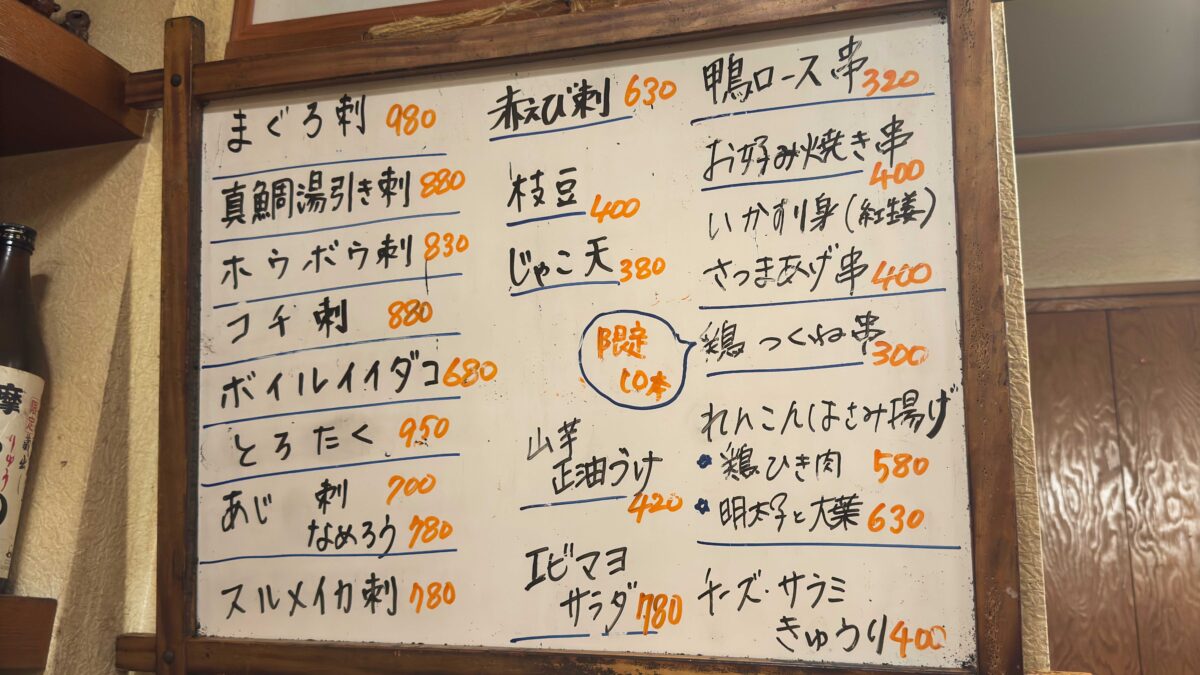 まぐろ刺 980
真鯛湯引き刺 880
ホウボウ刺 830
コチ刺 880
ボイルイイダコ 680
とろたく 950
あじ 刺 700
なめろう 780
スルメイカ刺 780
赤えび刺 630
枝豆 400
じゃこ天 380
限定
10本
山芋
正油づけ
420
エビマヨ
サラダ 780
鴨ロース串 320
お好み焼き串
400
いかすり身(紅生姜)
さつまあげ串 400
鶏つくね串
300
れんこんはさみ揚げ
鶏ひき肉 580
明太子と大葉 630
チーズ・サラミ
きゅうり 400
摩